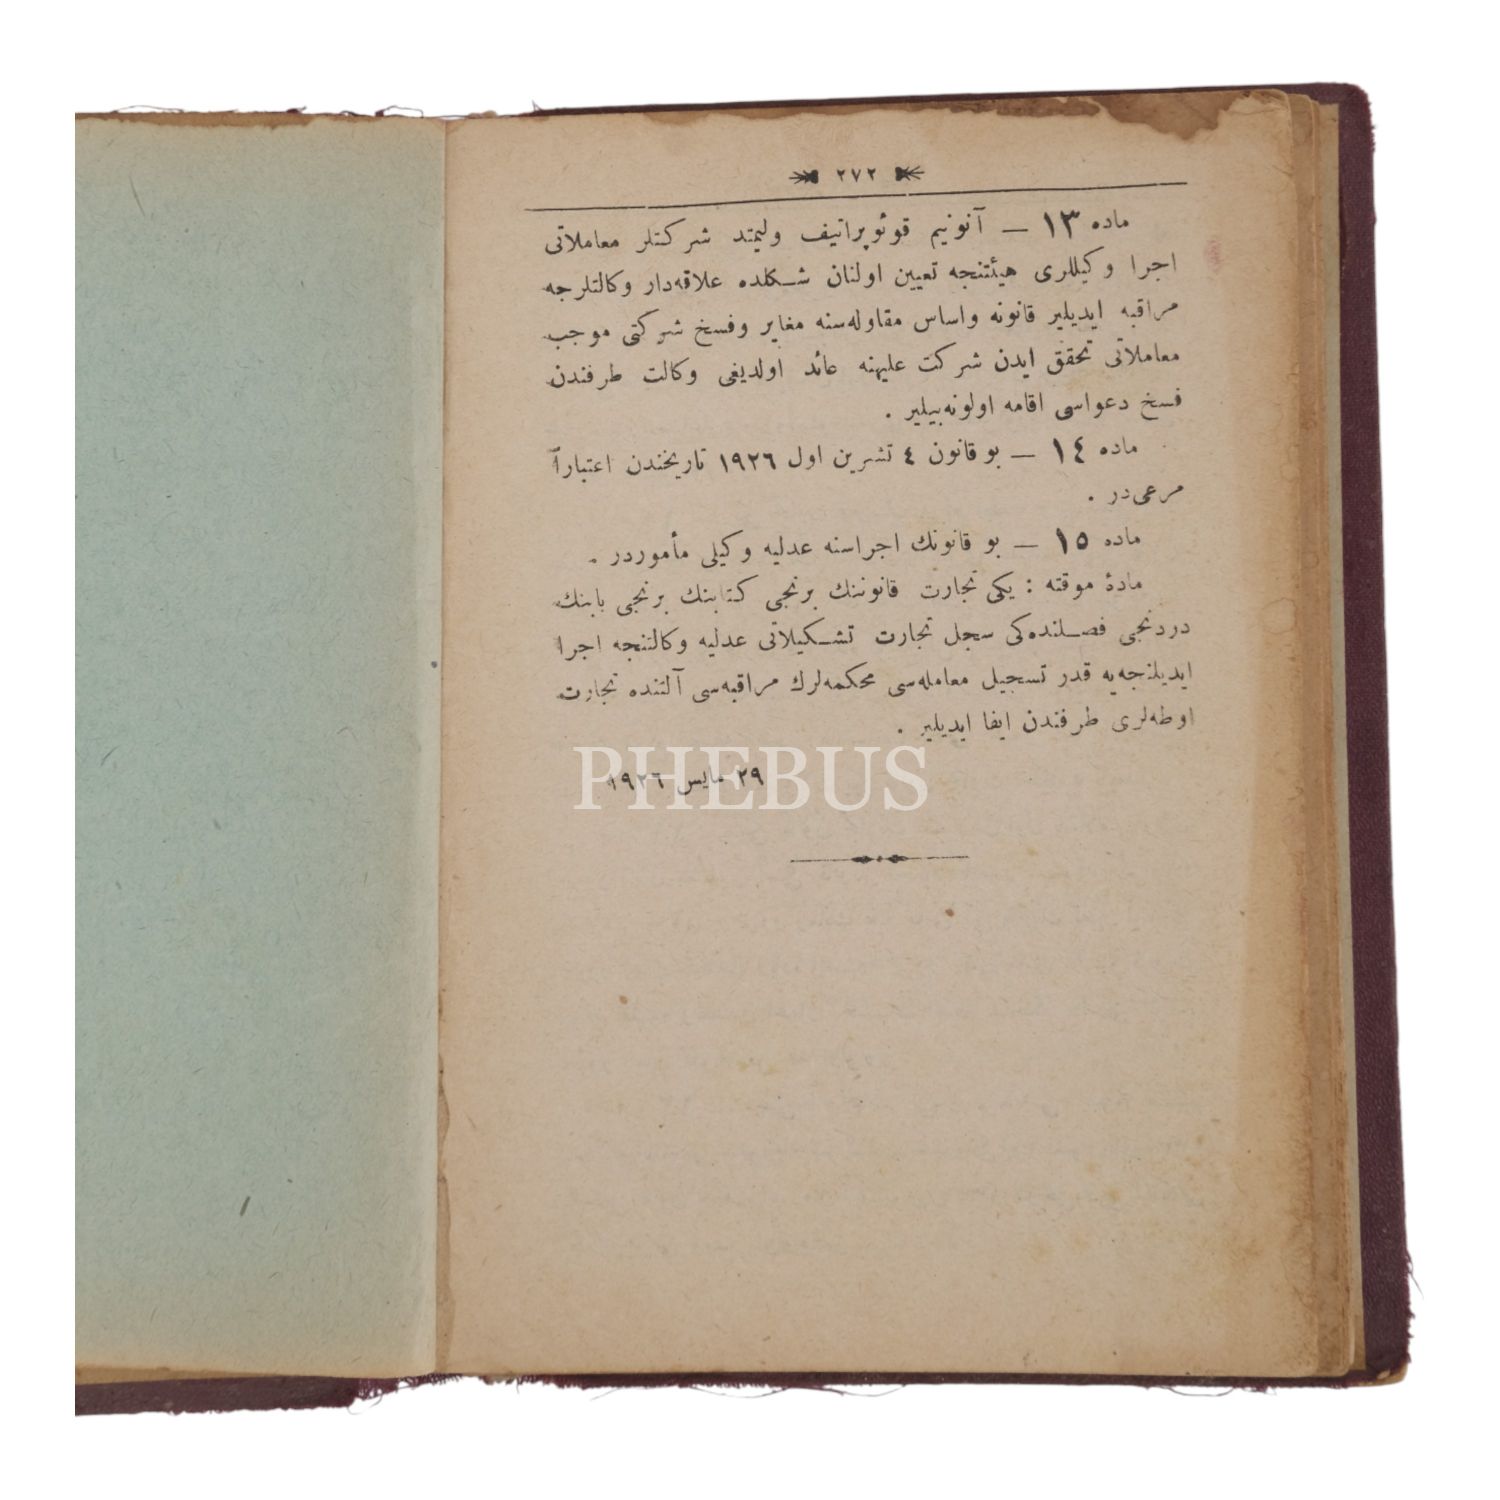 ٢٧٢
ماده ١٣ — آنونیم قوئوپراتیف ولیمتد شركتلر معاملاتی
اجرا وكیللری هیئتنجه تعیین اولنان شكلده علاقه‌دار وكالتلرجه
مراقبه ایدیلیر قانونه واساس مقاوله‌سنه مغایر وفسخ شركتی موجب
معاملاتی تحقق ایدن شركت علیهنه عائد اولدیغی وكالت طرفندن
فسخ دعواسی اقامه اولونه‌بیلیر .
ماده ١٤ — بو قانون ٤ تشرین اول ١٩٢٦ تاریخندن اعتباراً
مرعی‌در .
ماده ١٥ — بو قانونك اجراسنه عدلیه وكیلی مأموردر .
مادهٔ موقته : یكی تجارت قانوننك برنجی كتابنك برنجی بابنك
دردنجی فصلنده‌كی سجل تجارت تشكیلاتی عدلیه وكالتنجه اجرا
ایدیلنجه‌یه قدر تسجیل معامله‌سی محكمه‌لرك مراقبه‌سی آلتنده تجارت
اوطه‌لری طرفندن ایفا ایدیلیر .
٢٩ مایس ١٩٢٦
PHEBUS